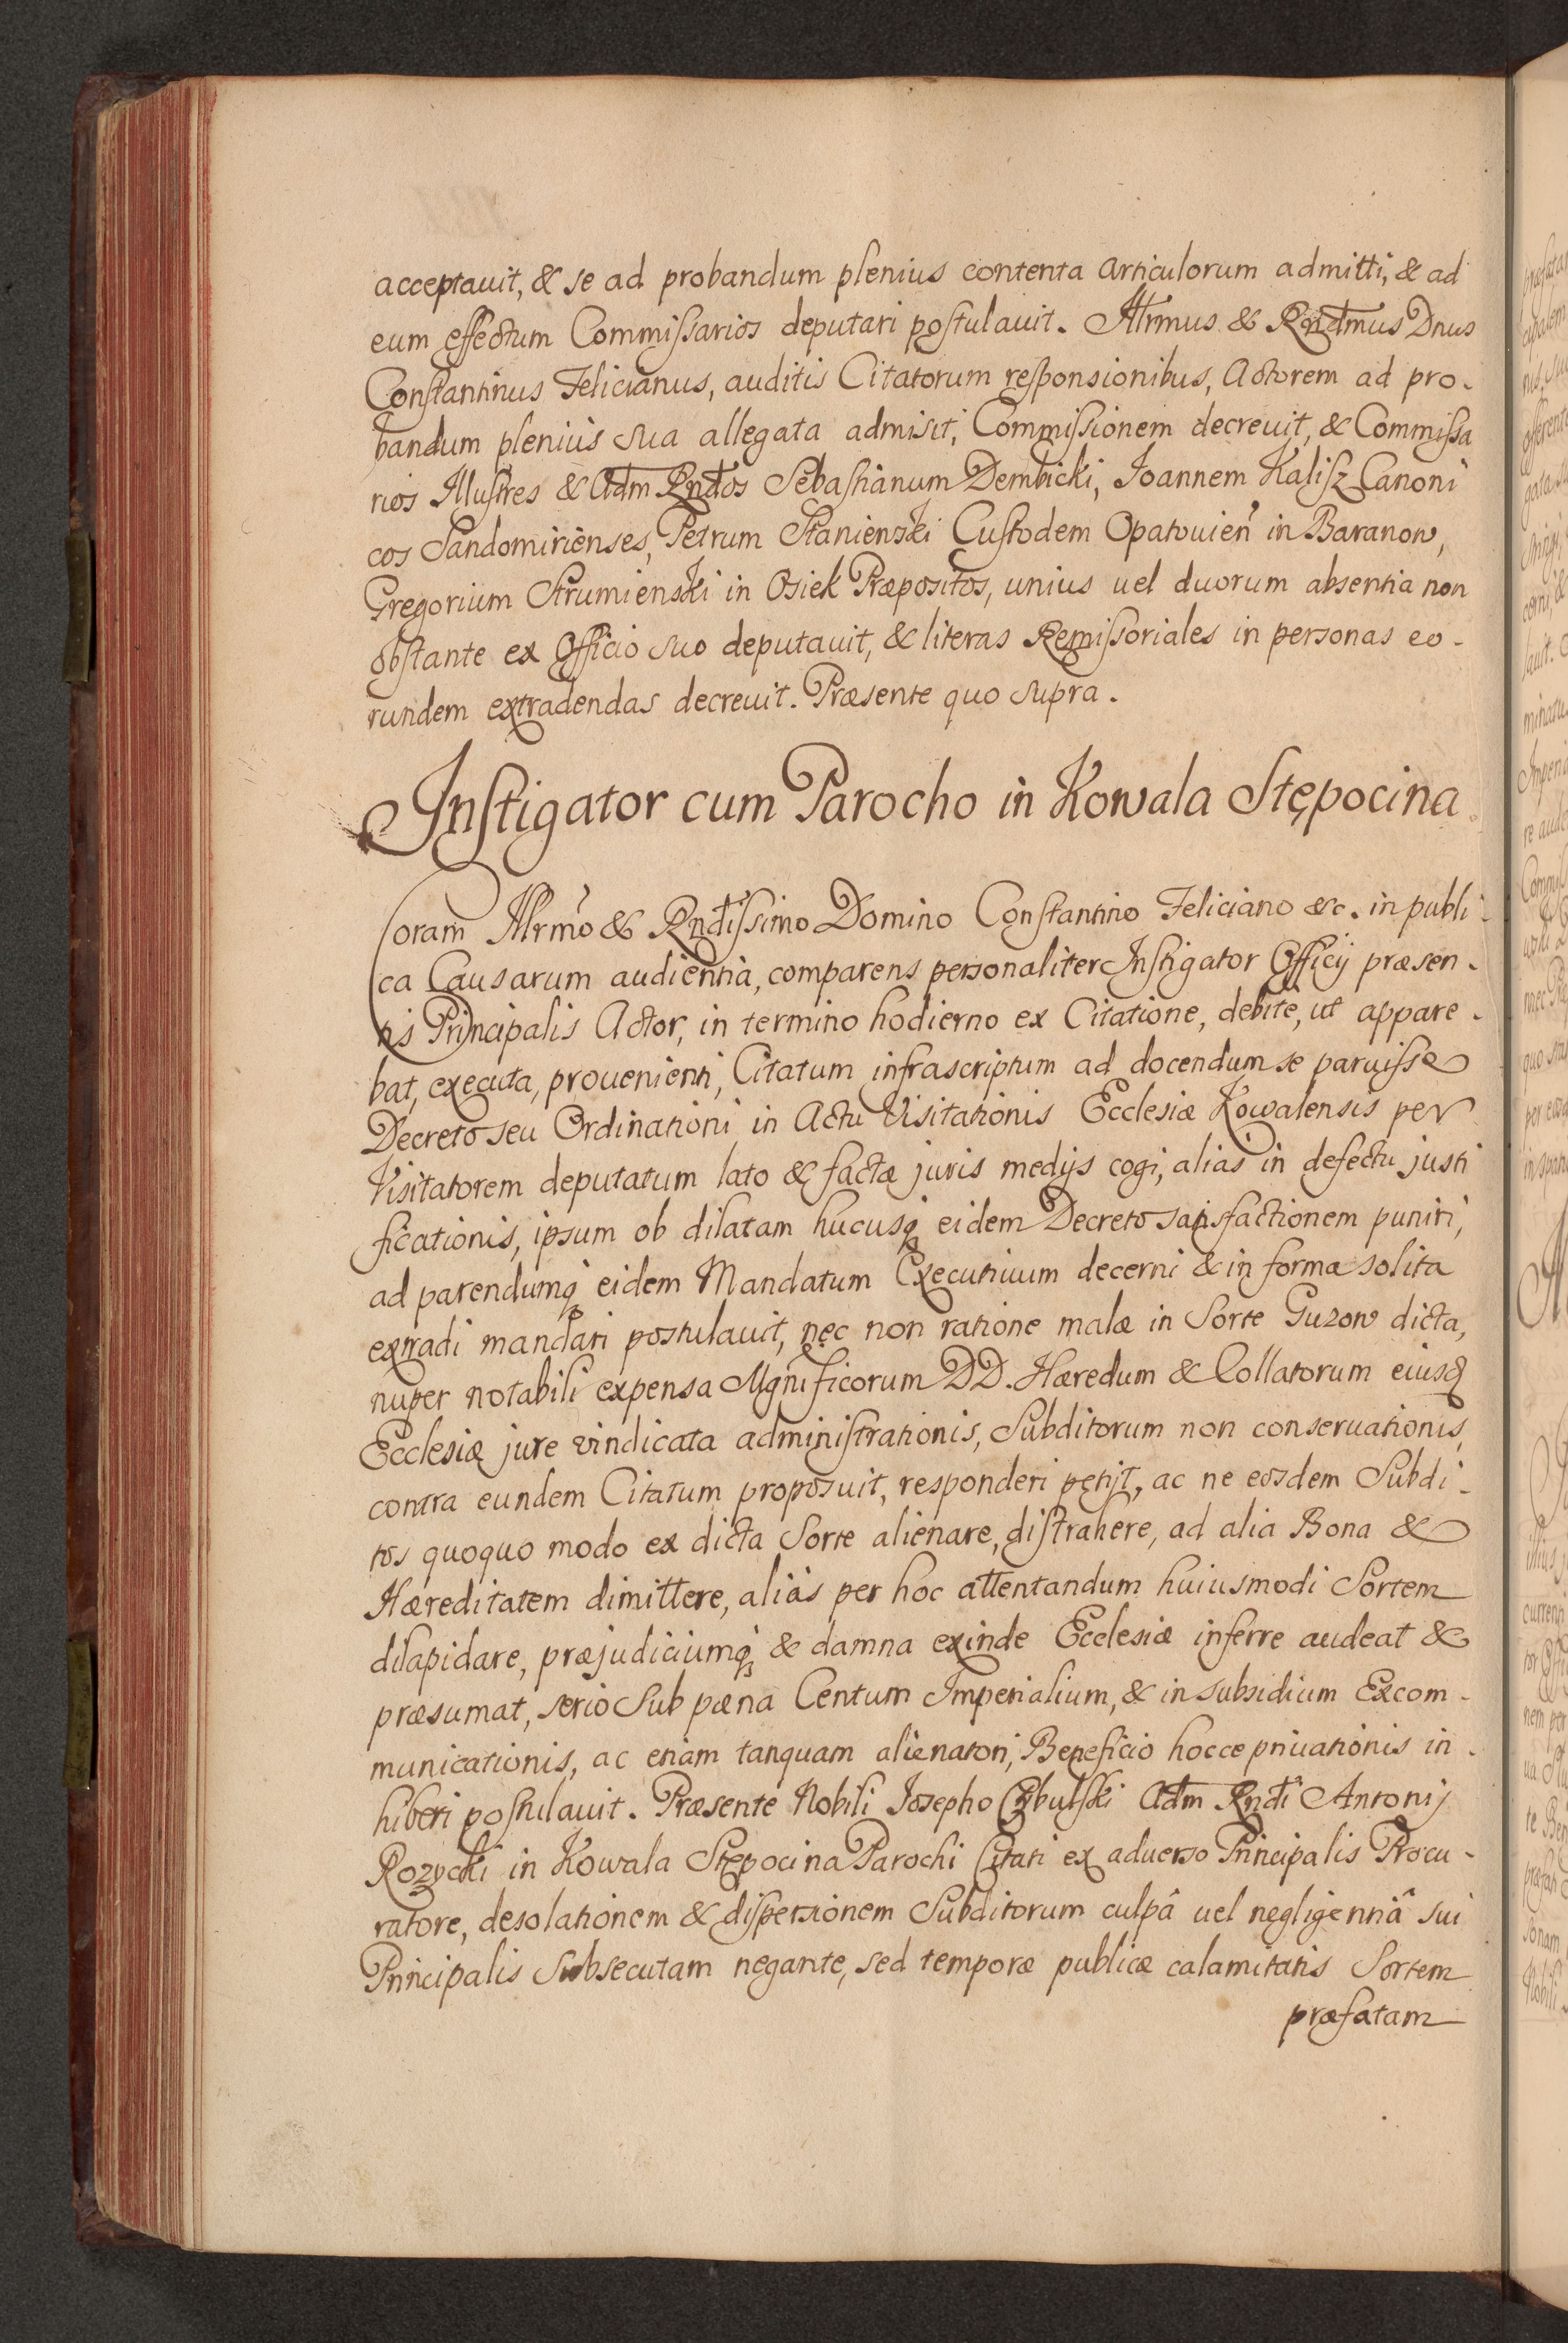 acceptauit, & se ad probandum plenius contenta Articulorum admitti, & ad
eum effectum Commissarios deputari postulauit. Illrmus & Rndmus Dnus
Constantinus Felicianus, auditis Citatorum responsionibus, Actorem ad pro-
bandum plenius sua allegata admisit, Commissionem decreuit, & Commissa
rios Illustres & Adm Rndos Sebastianum Dembicki, Ioannem Kalisz Canoni
cos Sandomirienses, Petrum Stanienski Custodem Opatouien in Baranow,
Gregorium Strumienski in Osiek Præpositos, unius uel duorum absentia non
obstante ex Officio suo deputauit, & literas Remissoriales in personas eo-
rundem extradendas decreuit. Præsente quo supra.
Instigator cum Parocho in Kowala Stępocina.
Coram Illrmo & Rndissimo Domino Constantino Feliciano &c. in publi-
ca Causarum audientia, comparens personaliter Instigator Officij præsen-
tis Principalis Actor, in termino hodierno ex Citatione, debite, ut appare-
bat, executa, prouenienti, Citatum infrascriptum ad docendum se paruisse
Decreto seu Ordinationi in Actu Visitationis Ecclesiæ Kowalensis per
Visitatorem deputatum lato & factæ juris medijs cogi, alias in defectu justi
ficationis, ipsum ob dilatam hucusq eidem Decreto satisfactionem puniri,
ad parendumq eidem Mandatum Executiuum decerni & in forma solita
extradi mandari postulauit, nec non ratione malæ in Sorte Guzow dicta,
nuper notabili expensa Mgnificorum DD. Hæredum & Collatorum eiusd
Ecclesiæ jure vindicata administrationis, Subditorum non conseruationis,
contra eundem Citatum proposuit, responderi petijt, ac ne eosdem Subdi-
tos quoquo modo ex dicta Sorte alienare, distrahere, ad alia Bona &
Hæreditatem dimittere, alias per hoc attentandum huiusmodi Sortem
dilapidare, præjudiciumq & damna exinde Ecclesiæ inferre audeat &
præsumat, serio sub pæna Centum Imperialium, & in subsidium Excom-
municationis, ac etiam tanquam alienatori, Beneficio hocce priuationis in-
hiberi postulauit. Præsente Nobili Iosepho Cybulski Adm Rndi Antonij
Rozycki in Kowala Stępocina Parochi Citati ex aduerso Principalis Procu-
ratore, desolationem & dispersionem Subditorum culpâ uel negligentiâ sui
Principalis Subsecutam negante, sed tempore publicæ calamitatis Sortem
præfatam